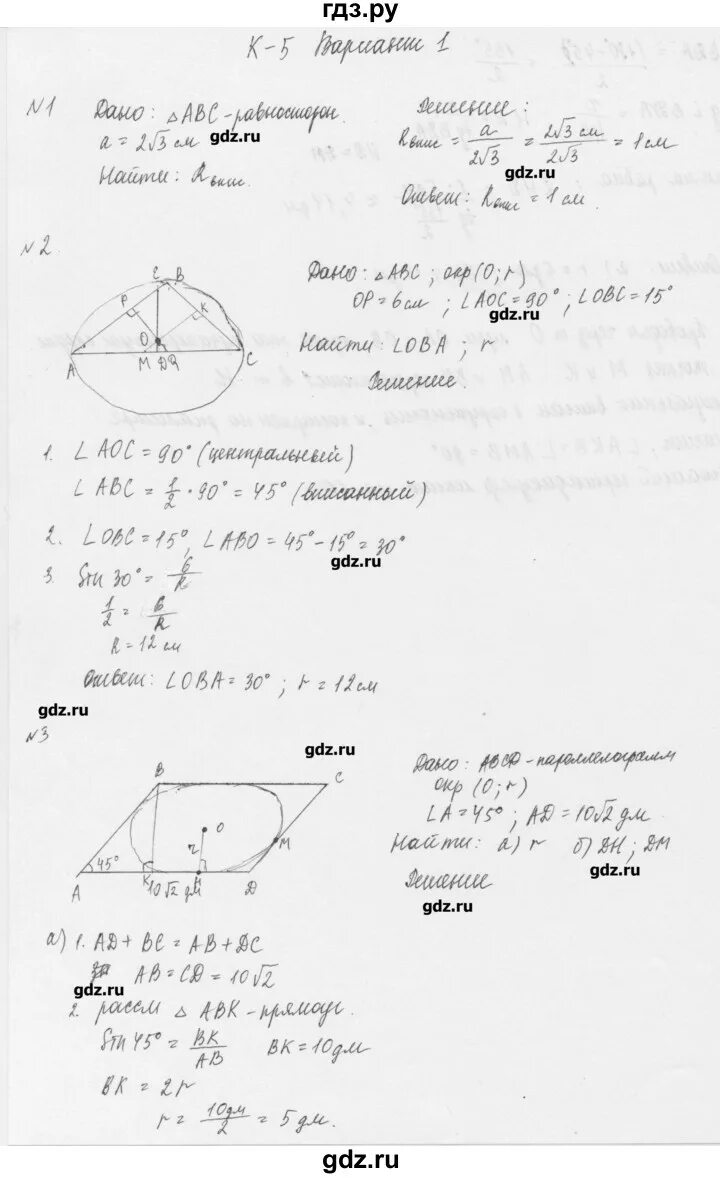 гдз.ру
К-5 Вариант 1
№1
Дано: △ABC - равносторон.
a = 2√3 см
gdz.ru
Найти: Rвпис.
Решение:
Rвпис = a/2√3 = 2√3 см/2√3 = 1 см
gdz.ru
Ответ: Rвпис = 1 см.
№2
E B P K O A M D R C
Дано: △ABC; окр(O; r)
OP = 6 см; ∠AOC = 90°; ∠OBC = 15°
gdz.ru
Найти: ∠OBA; r
Решение.
1. ∠AOC = 90° (центральный)
∠ABC = 1/2 · 90° = 45° (вписанный)
2. ∠OBC = 15°, ∠ABO = 45° - 15° = 30°
gdz.ru
3. Sin 30° = 6/R
1/2 = 6/R
R = 12 см
Ответ: ∠OBA = 30°; r = 12 см
gdz.ru
№3
gdz.ru
B C O M r 45° A K H D
10√2 дм
Дано: ABCD - параллелограмм
окр (O; r)
∠A = 45°; AD = 10√2 дм.
Найти: а) r б) DH; DM
gdz.ru
Решение
gdz.ru
а) 1. AD + BC = AB + DC
AB = CD = 10√2
gdz.ru
2. рассм △ ABK - прямоуг.
Sin 45° = BK/AB BK = 10 дм
BK = 2r
r = 10 дм/2 = 5 дм.
gdz.ru